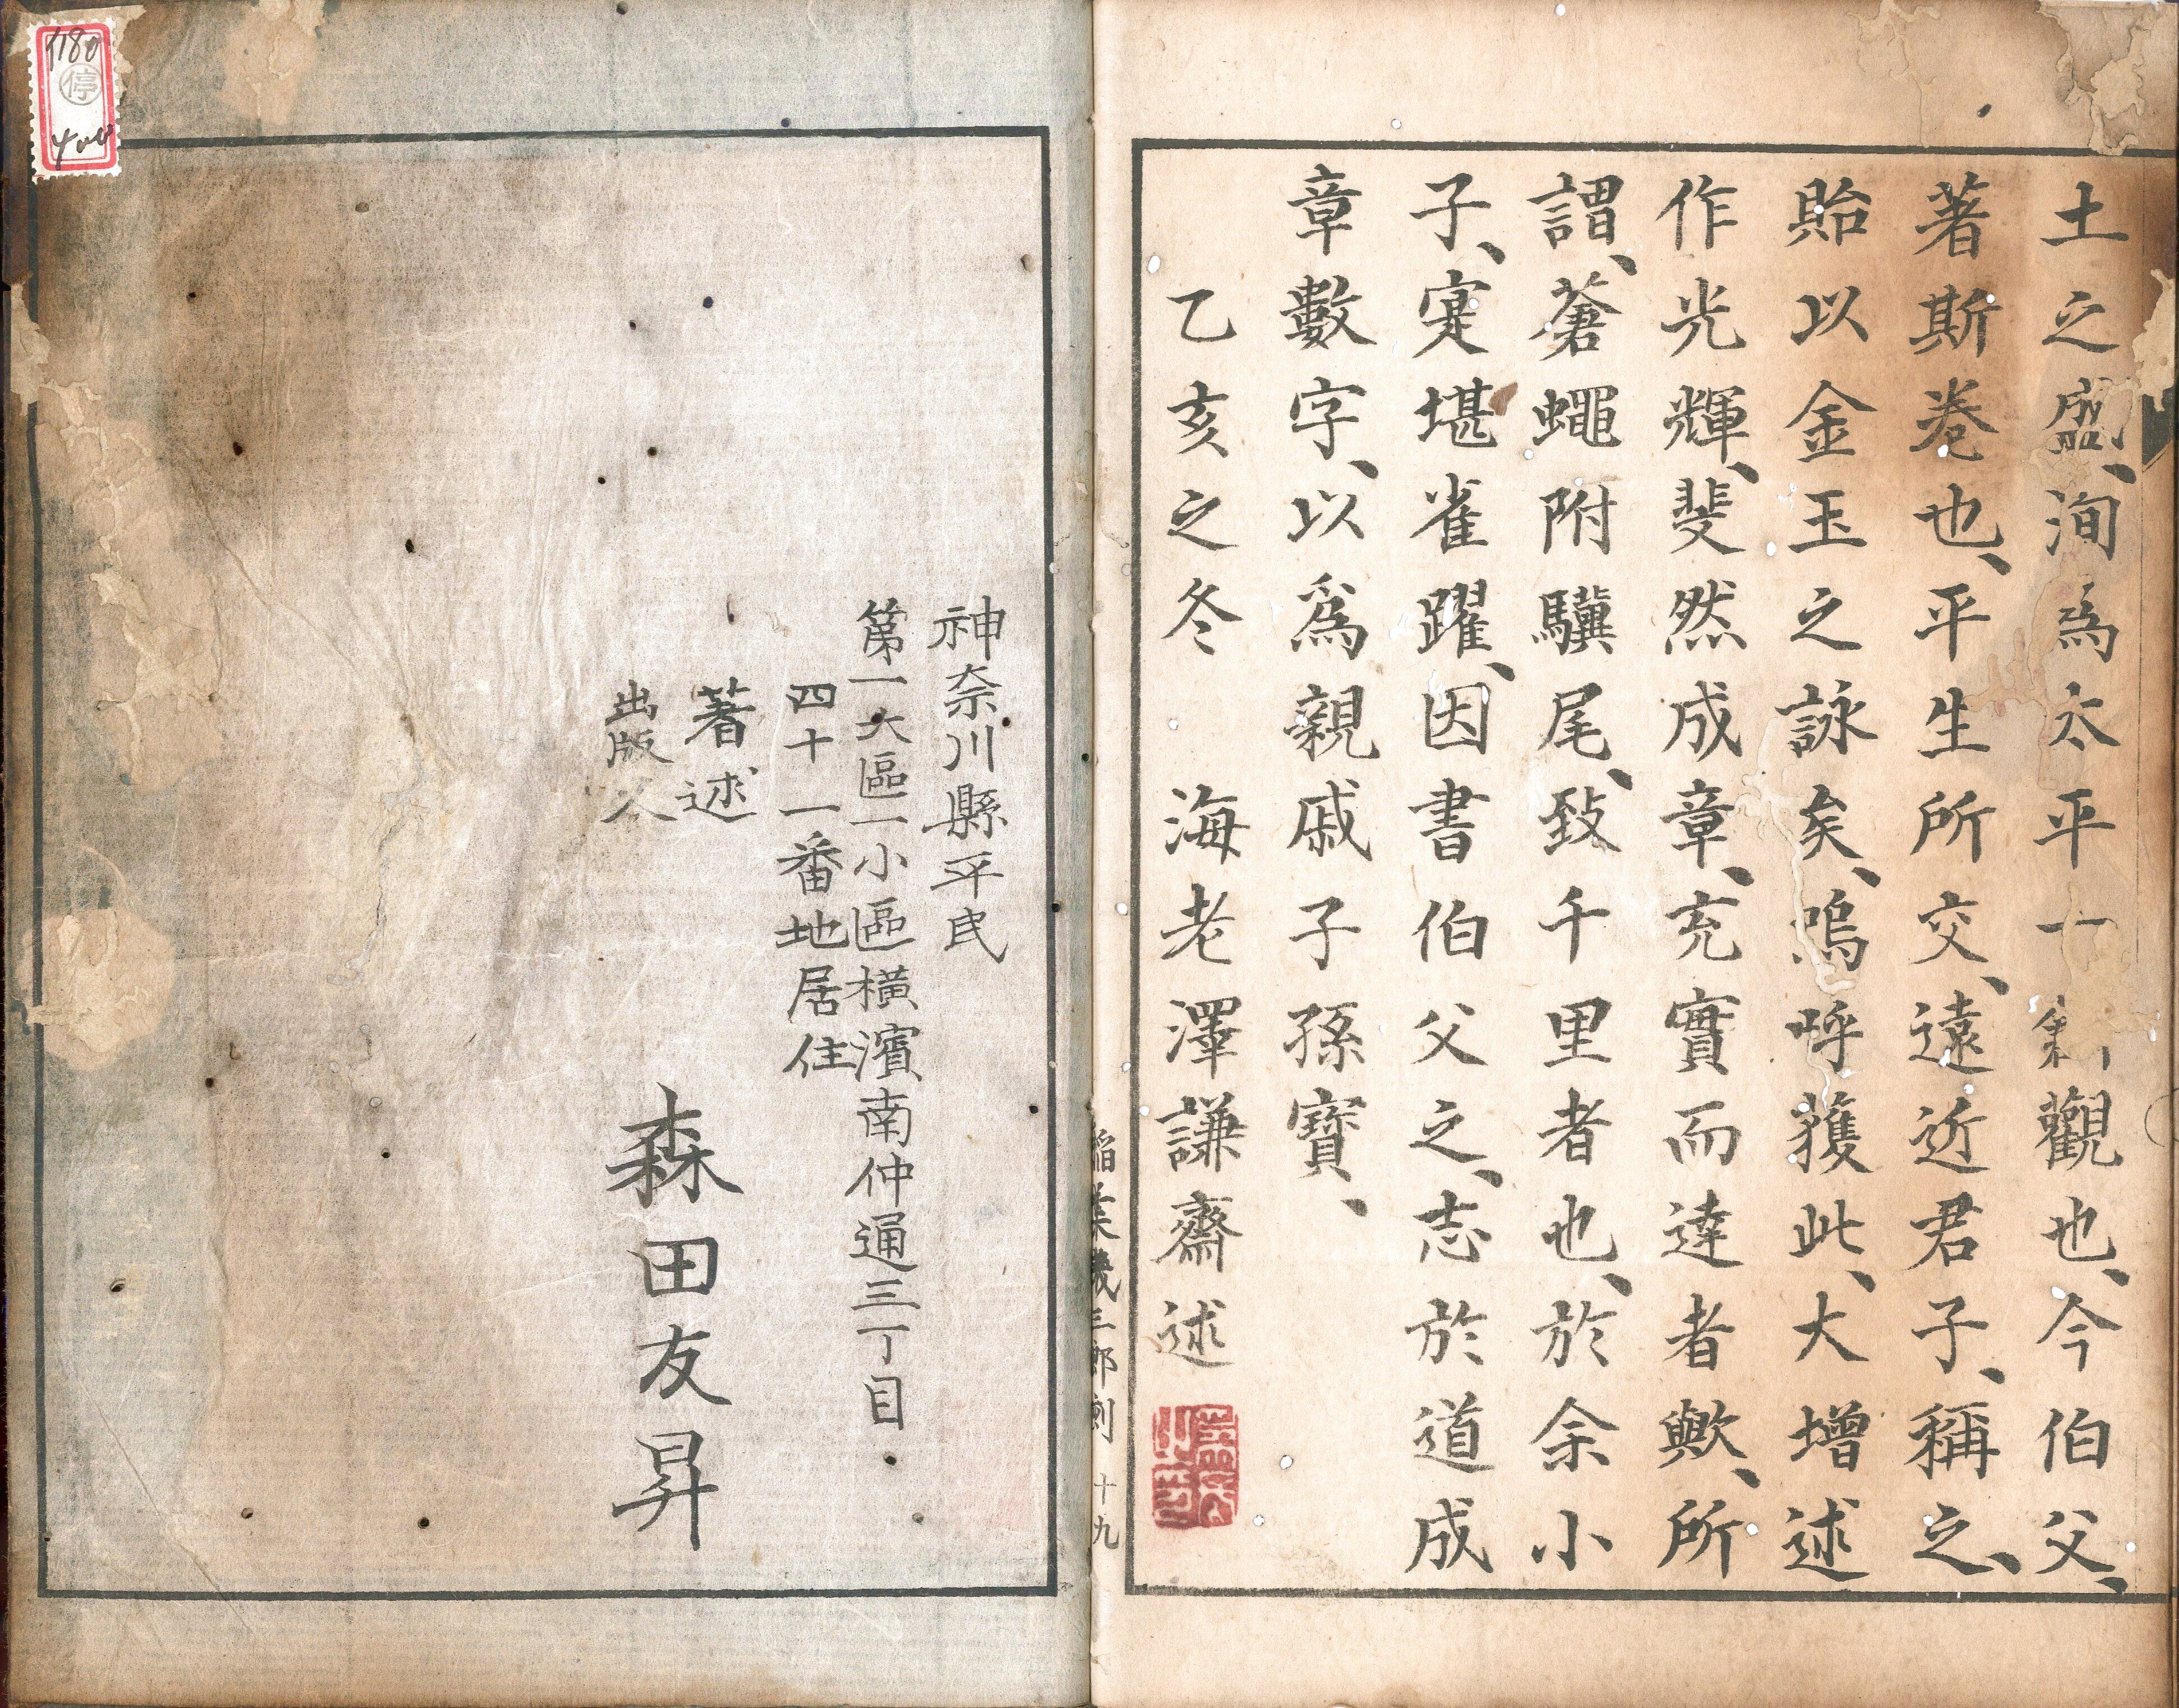 土之盛、洵爲太平一新觀也、今伯父、
著斯卷也、平生所交、遠近君子、稱之、
貽以金玉之詠矣、嗚呼獲此、大增述
作光輝、斐然成章、充實而達者歟、所
謂、蒼蠅附驥尾、致千里者也、於余小
子、寔堪雀躍、因書伯父之、志於道成
章數字、以爲親戚子孫寶、
乙亥之冬 海老澤謙齋述
稻葉幾三郎刻 十九
神奈川縣平民
第一大區一小區橫濱南仲通三丁目
四十一番地居住
著述
出版人
森田友昇
1180
停
400